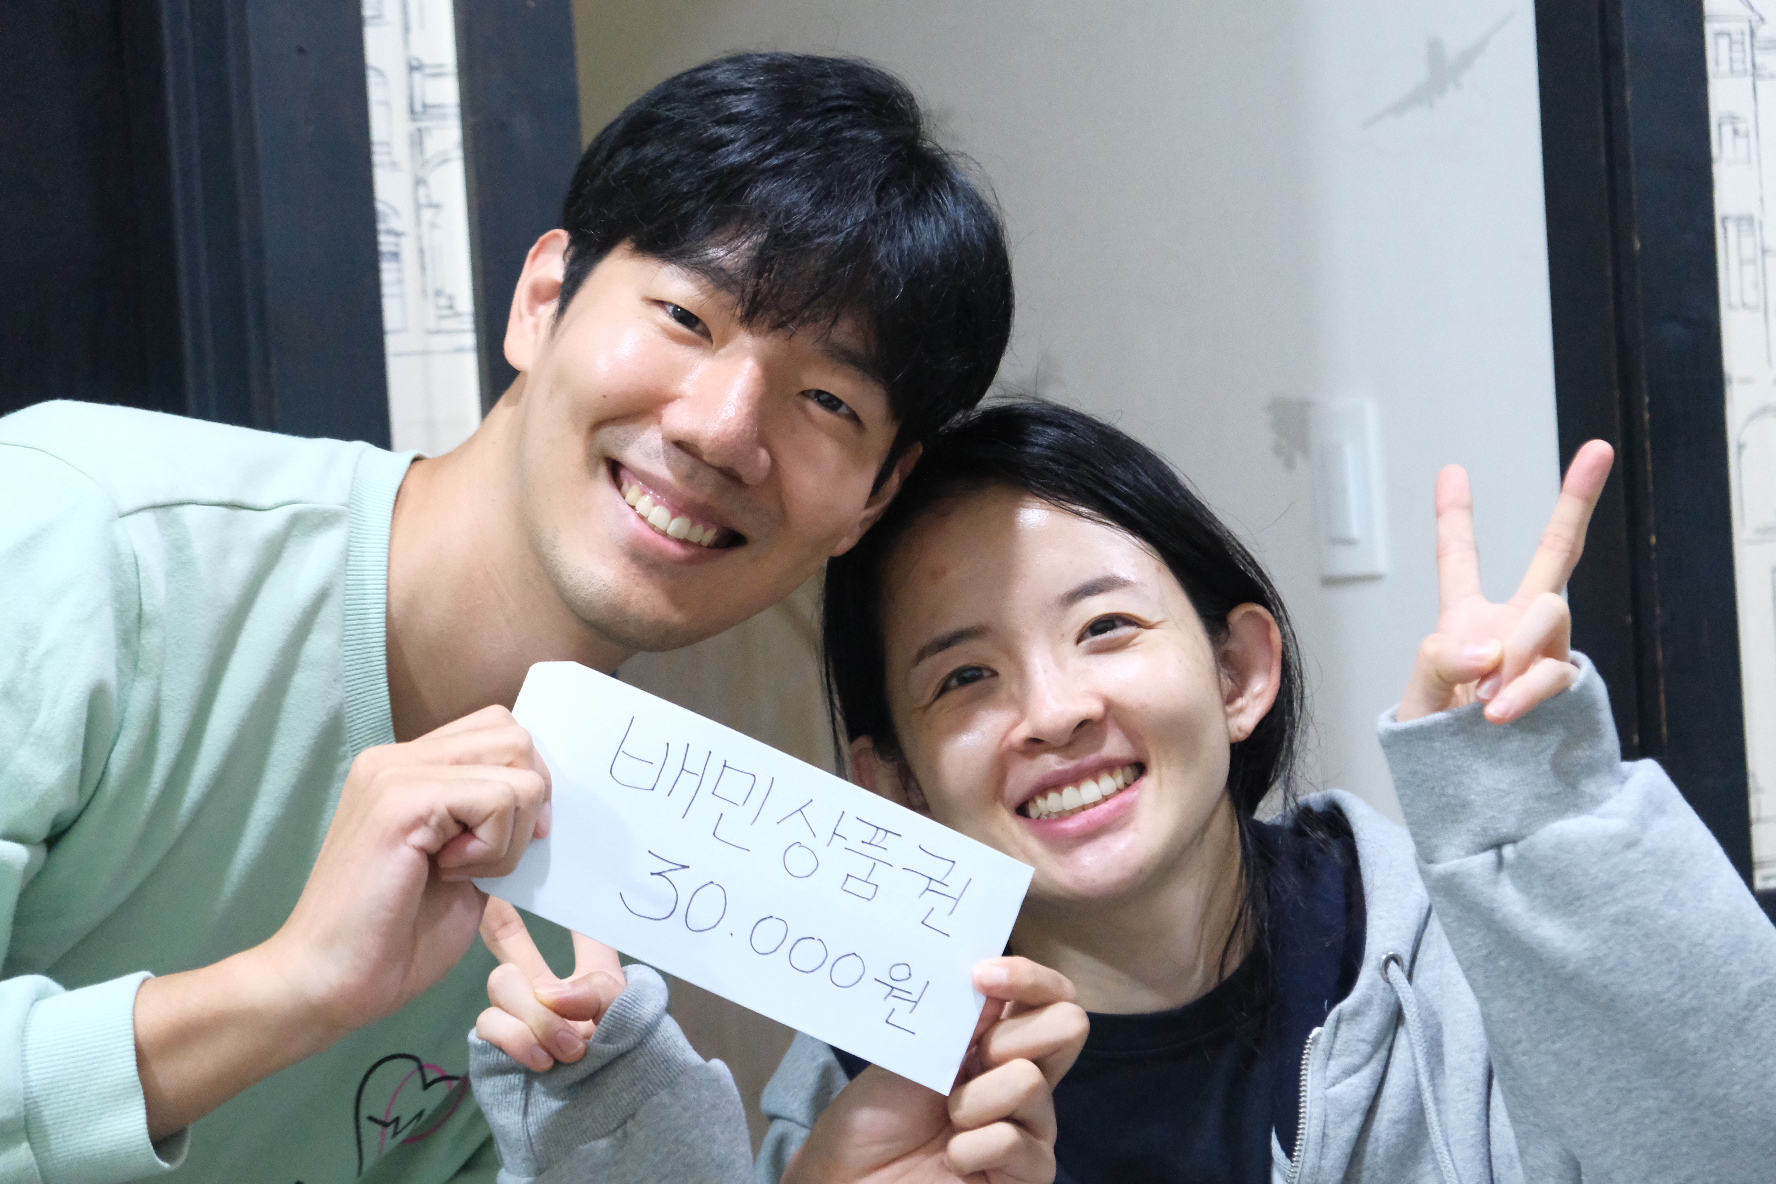 배민상품권
30.000원